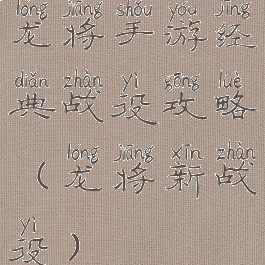 lóng jiāng shǒu yóu jīng
龙将手游经
diǎn zhàn yì gōng lüè
典战役攻略
lóng jiāng xīn zhàn
（龙将新战
yì
役）